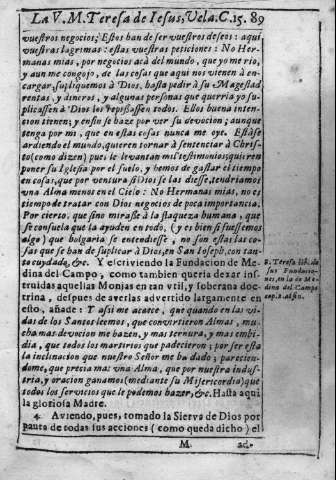 La V. M. Teresa de Iesus, Vela. C. 15. 89
vuestros negocios; Estos han de ser vuestros deseos: aqui,
vuestras lagrimas: estas vuestras peticiones: No Her-
manas mias, por negocios acà del mundo, que yo me rio,
y aun me congojo, de las cosas que aqui nos vienen à en-
cargar, supliquemos à Dios, hasta pedir à su Magestad
rentas, y dineros, y algunas personas que querria yo su-
plicassen à Dios los repossassen todo. Ellos buena inten-
cion tienen; y enfin se haze por ver su devocion; aunque
tengo por mi, que en estas cosas nunca me oye. Estàse
ardiendo el mundo, quieren tornar à sentenciar à Chris-
to (como dizen) pues le levantan mil testimonios; quieren
poner su Iglesia por el suelo, y hemos de gastar el tiempo
en cosas, que por ventura si Dios se las diesse, tendriamos
vna Alma menos en el Cielo: No Hermanas mias, no es
tiempo de tratar con Dios negocios de poca importancia.
Por cierto, que sino mirasse à la flaqueza humana, que
se consuela que la ayuden en todo, (y es bien si fuessemos
algo) que holgaria se entendiesse, no son estas las co-
sas que se han de suplicar à Dios, en San Ioseph, con tan-
to cuydado, &c. Y escriviendo la Fundacion de Me-
dina del Campo, como tambien queria dexar ins-
truidas aquellas Monjas en tan vtil, y soberana doc-
trina, despues de averlas advertido largamente en
esto, añade: Y assi me acaece, que quando en las vi-
das de los Santos leemos, que convirtieron Almas, mu-
cha mas devocion me hazen, y mas ternura, y mas embi-
dia, que todos los martirios que padecieron; por ser esta
la inclinacion que nuestro Señor me ha dado; parecien-
dome, que precia mas vna Alma, que por nuestra indus-
tria, y oracion ganamos (mediante su Misericordia) que
todos los servicios que le podemos hazer, &c. Hasta aqui
la gloriosa Madre.
4. Aviendo, pues, tomado la Sierva de Dios por
pauta de todas sus acciones (como queda dicho) el
M. ad-
S. Teresa lib. de
sus Fundacio-
nes, en la de Me-
dina del Campo
cap. 1. al fin.